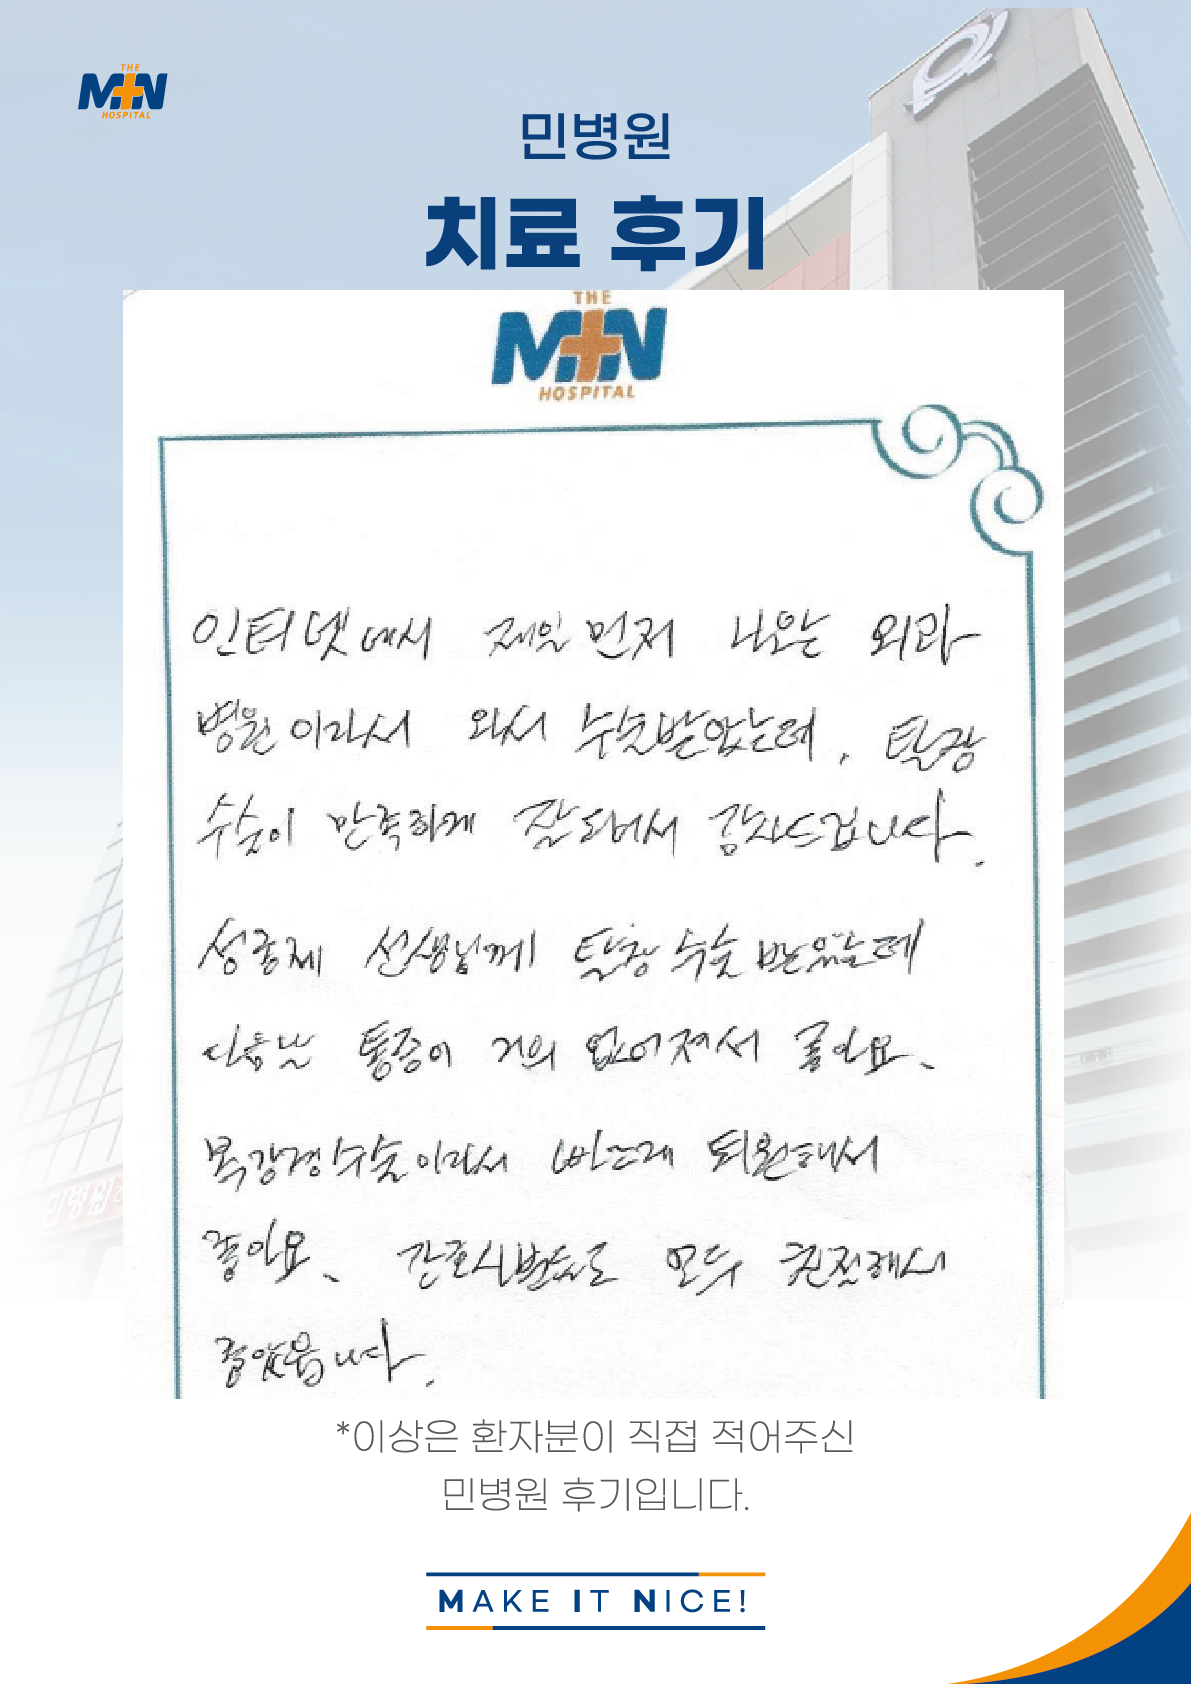 THE
MIN
HOSPITAL
민병원
치료 후기
THE
MIN
HOSPITAL
인터넷에서 제일 먼저 나오는 외과
병원이라서 와서 수술받았는데, 탈장
수술이 만족하게 잘되어서 감사드립니다.
성종제 선생님께 탈장 수술 받았는데
다음날 통증이 거의 없어져서 좋아요.
복강경수술이라서 빠르게 퇴원해서
좋아요. 간호사분들도 모두 친절해서
좋았읍니다.
민병원
*이상은 환자분이 직접 적어주신
민병원 후기입니다.
MAKE IT NICE!